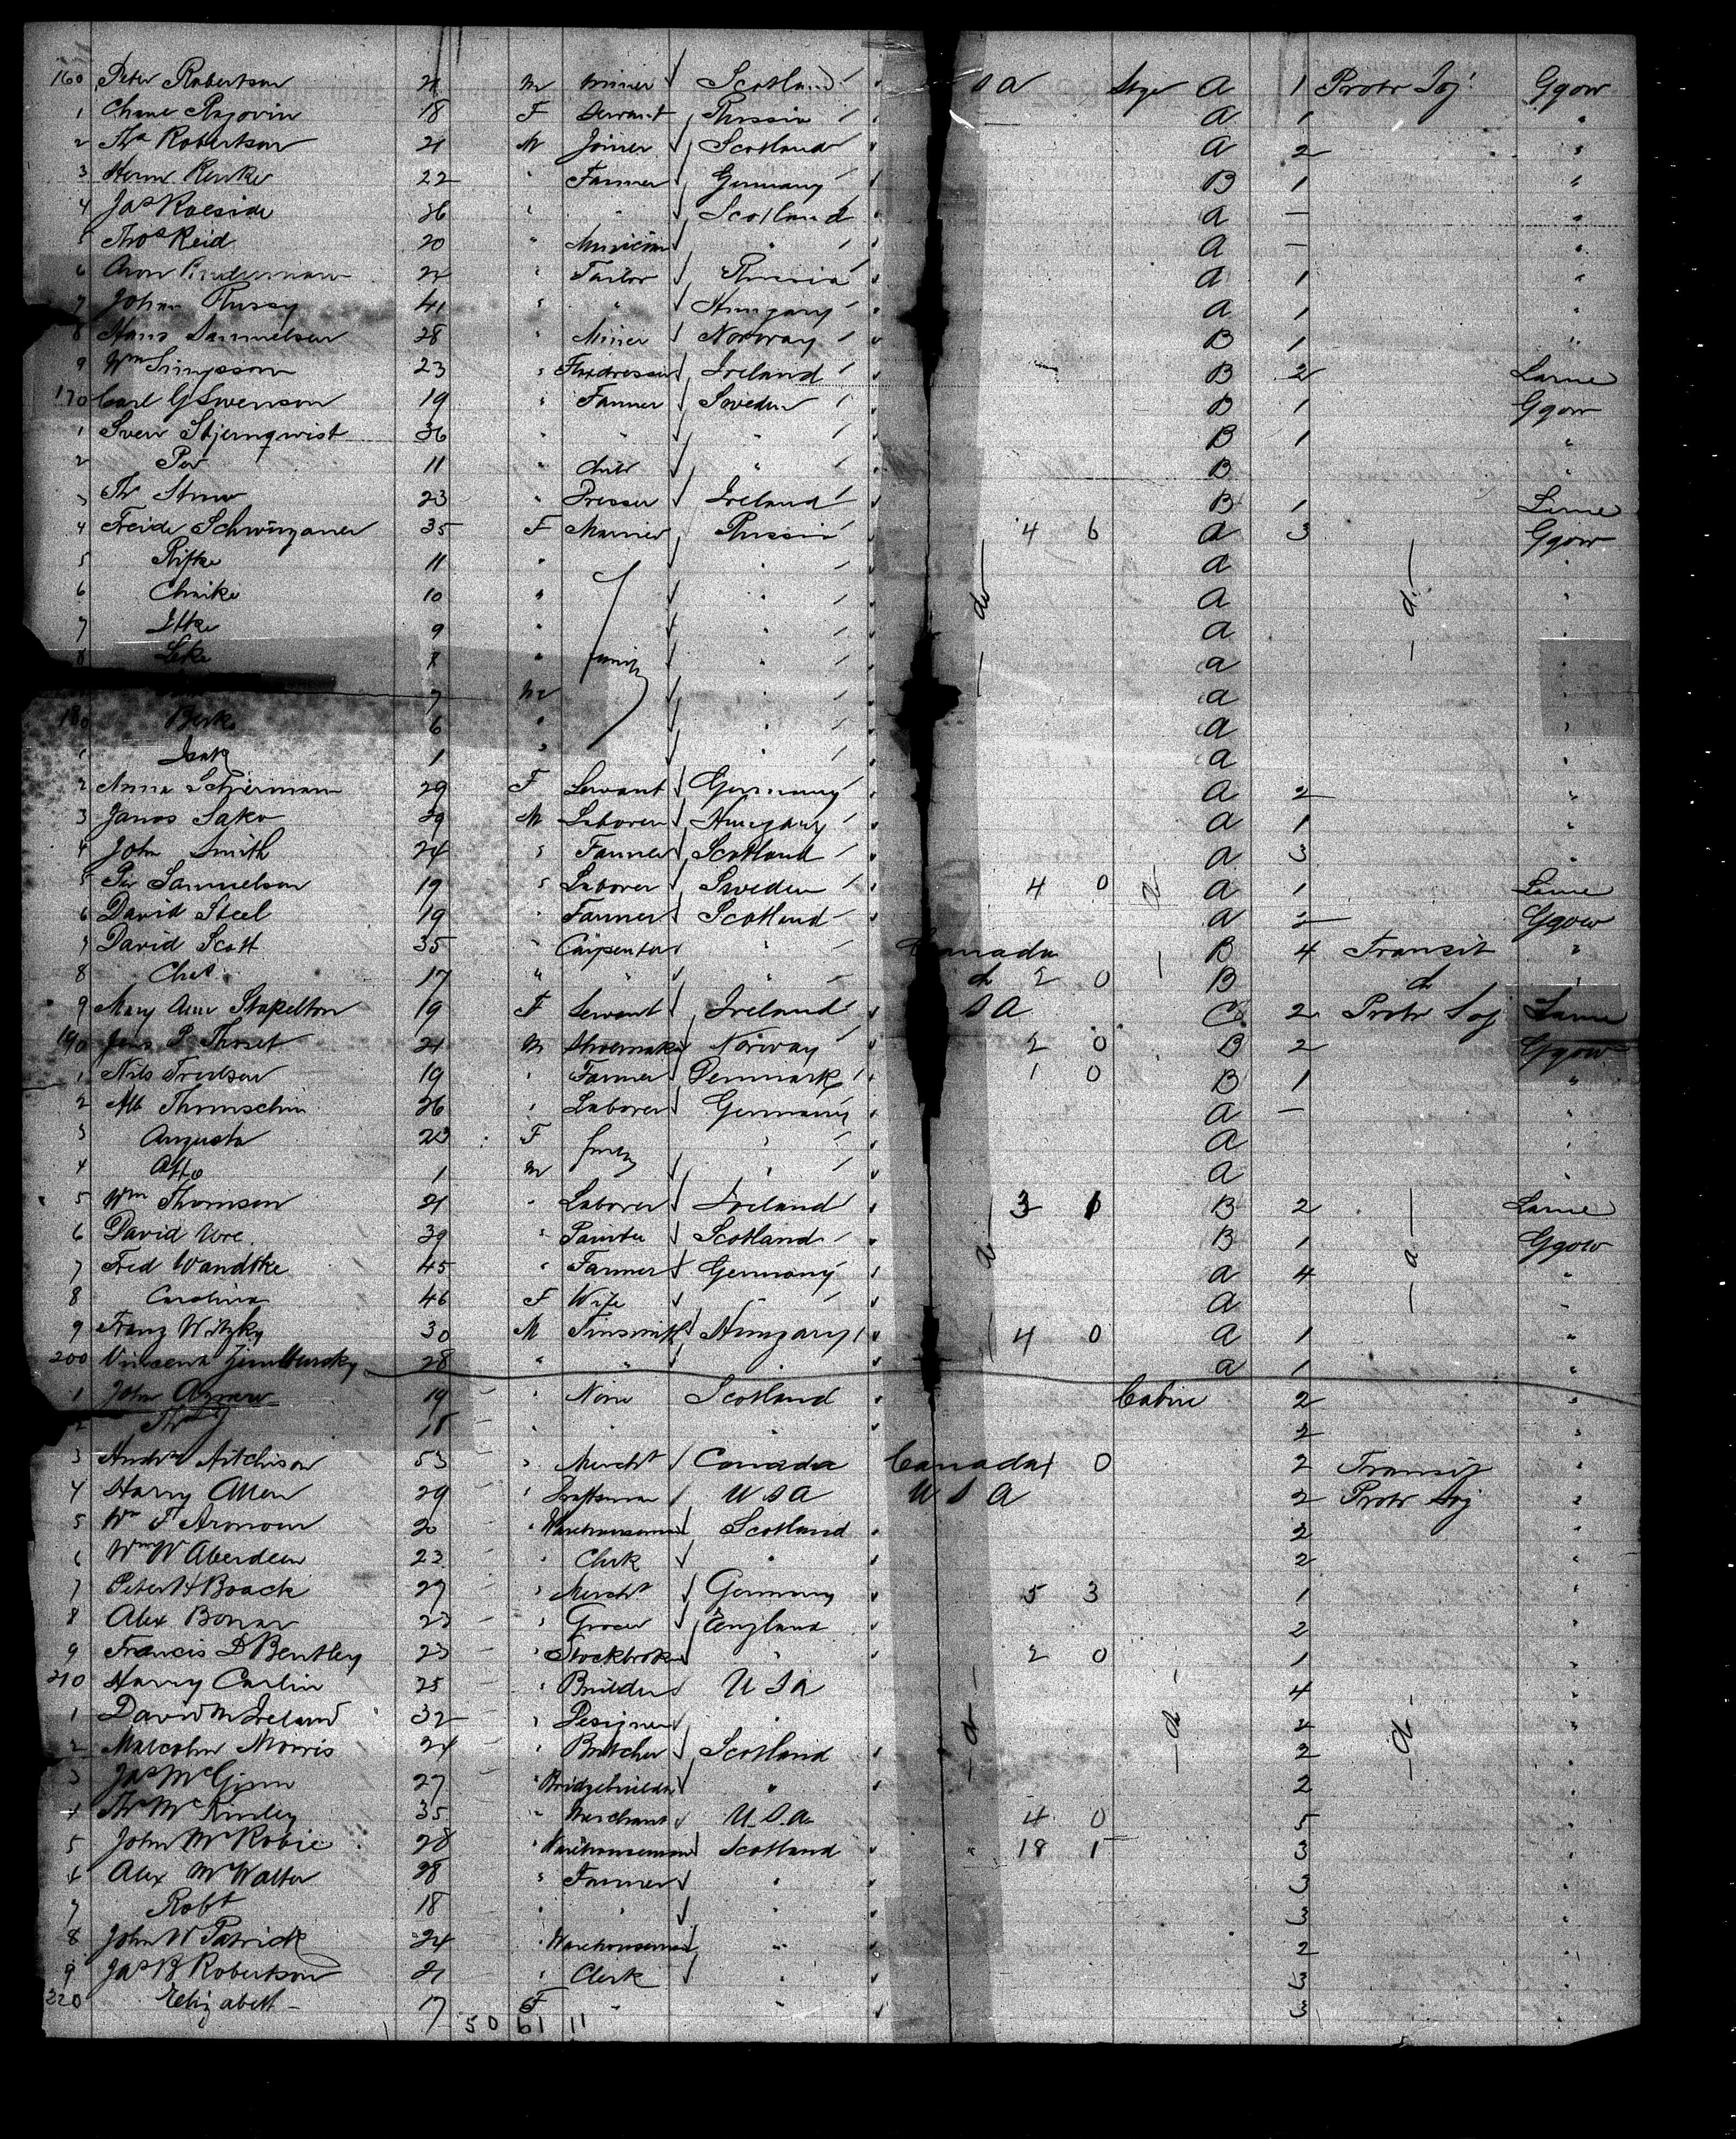 160 Peter Robertson 21 M Miner Scotland S A Stge A 1 Protr Soj Ggow
1 Chane Rogovin 18 F Servant Russia A 1 "
2 Thos Robertson 21 M Joiner Scotland A 2 "
3 Herm Renke 22 " Farmer Germany B 1 "
4 Jas Raeside 36 " " Scotland A — "
5 Thos Reid 20 " Musician " A — "
6 Aron 22 " Tailor Russia A 1 "
7 Johan Russy 41 " " Hungary A 1 "
8 Hans Samuelsen 28 " Miner Norway B 1 "
9 Wm Simpson 23 " Flaxdresser Ireland B 2 Larne
170 Carl G Swenson 19 " Farmer Sweden B 1 Ggow
1 Sven Stjernqvist 36 " " " B 1 "
2 Per 11 " child " B "
3 Th 23 " Presser Ireland B 1 Larne
4 Freide Schwinganer 35 F Married Russia 4 6 A 3 Ggow
5 Rifke 11 " " A "
6 Chaike 10 " " A "
7 Itke 9 " " A "
8 Leke 8 " family " A "
7 M " A "
180 Berk 6 " " A "
1 Isak 1 " " A
2 Anna 29 F Servant Germany A 2 "
3 Janos Sako 39 M Laborer Hungary A 1 "
4 John Smith 24 " Farmer Scotland A 3 "
5 Per Samuelson 19 " Laborer Sweden 4 0 A 1 Larne
6 David Steel 19 " Farmer Scotland A 2 Ggow
7 David Scott 35 " Carpenter " Canada B 4 Transit "
8 Chas 17 " " " do 2 0 B do "
9 Mary Ann Stapelton 19 F Servant Ireland S A C 2 Protr Soj Larne
190 Jens P Thoset 21 M Shoemaker Norway 2 0 B 2 Ggow
1 Nils Troelsen 19 " Farmer Denmark 1 0 B 1 "
2 Alb 26 " Laborer Germany A — "
3 Augusta 23 F family " A "
4 Otto 1 M " A "
5 Wm Thomson 21 " Laborer Ireland 3 1 B 2 Larne
6 David Ure 39 " Painter Scotland B 1 Ggow
7 Fred Wandtke 45 " Farmer Germany A 4 "
8 Carolina 46 F Wife " A "
9 Franz Witzky 30 M Tinsmith Hungary 4 0 A 1 "
200 Vincent 28 " " " A 1 "
1 John Agnew 19 " None Scotland Cabin 2 "
2 Thos J 18 " " " 2 "
3 Andw Aitchison 53 " Mercht Canada Canada 1 0 2 Transit "
4 Harry Allen 29 " Draftsman U S A U S A 2 Protr Soj "
5 Wm F Armour 20 " Warehouseman Scotland 2 "
6 Wm W Aberdeen 23 " Clerk " 2 "
7 Peter H Boack 27 " Mercht Germany 5 3 1 "
8 Alex Bonar 23 " Grocer England 2 "
9 Francis D Bentley 23 " Stockbroker " 2 0 1 "
210 Harry Carlin 25 " Builder U S A 4 "
1 David M Ireland 32 " Designer " 2 "
2 Malcolm Morris 24 " Butcher Scotland 2 "
3 Jas McGinn 27 " Bridgebuilder " 2 "
4 Th McKinley 35 " Merchant U.S.A. 4 0 5 "
5 John McRobie 28 " Warehouseman Scotland " 18 1 3 "
6 Alex McWalter 28 " Farmer " 3 "
7 Robt 18 " " " 3 "
8 John W Patrick 24 " Warehouseman " 2 "
9 Jas B Robertson 21 " Clerk " 3 "
220 Elizabeth 17 F " " 3 "
50 61 11